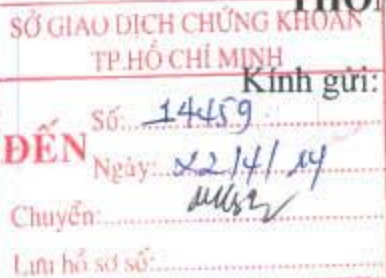 SỞ GIAO DỊCH CHỨNG KHOÁN
TP.HỒ CHÍ MINH
Kính gửi:
ĐẾN
Số: 14459
Ngày: 22/4/14
Chuyển:
Lưu hồ sơ số: